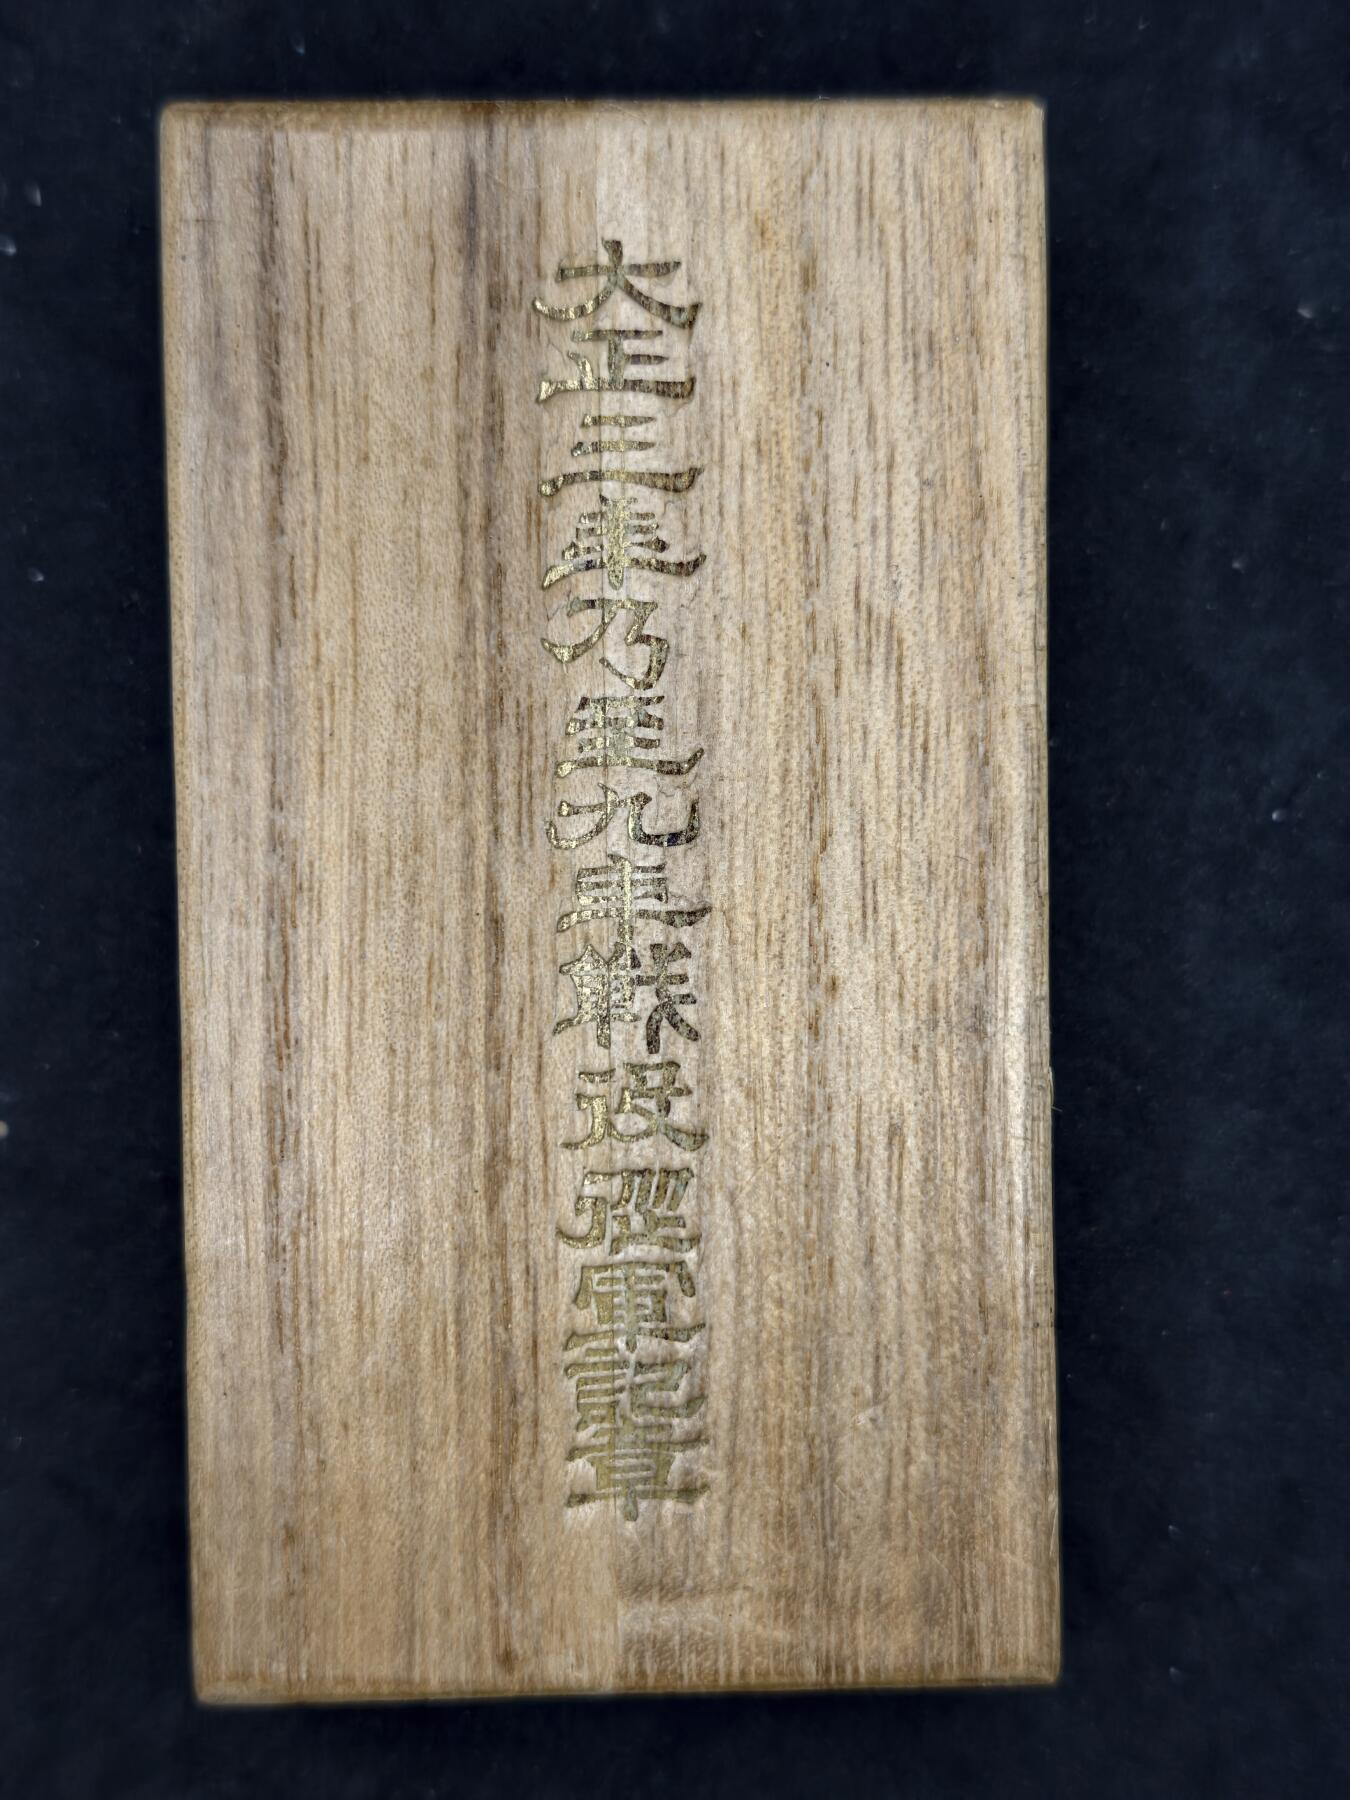 大正三年乃至九年戦役從軍記章